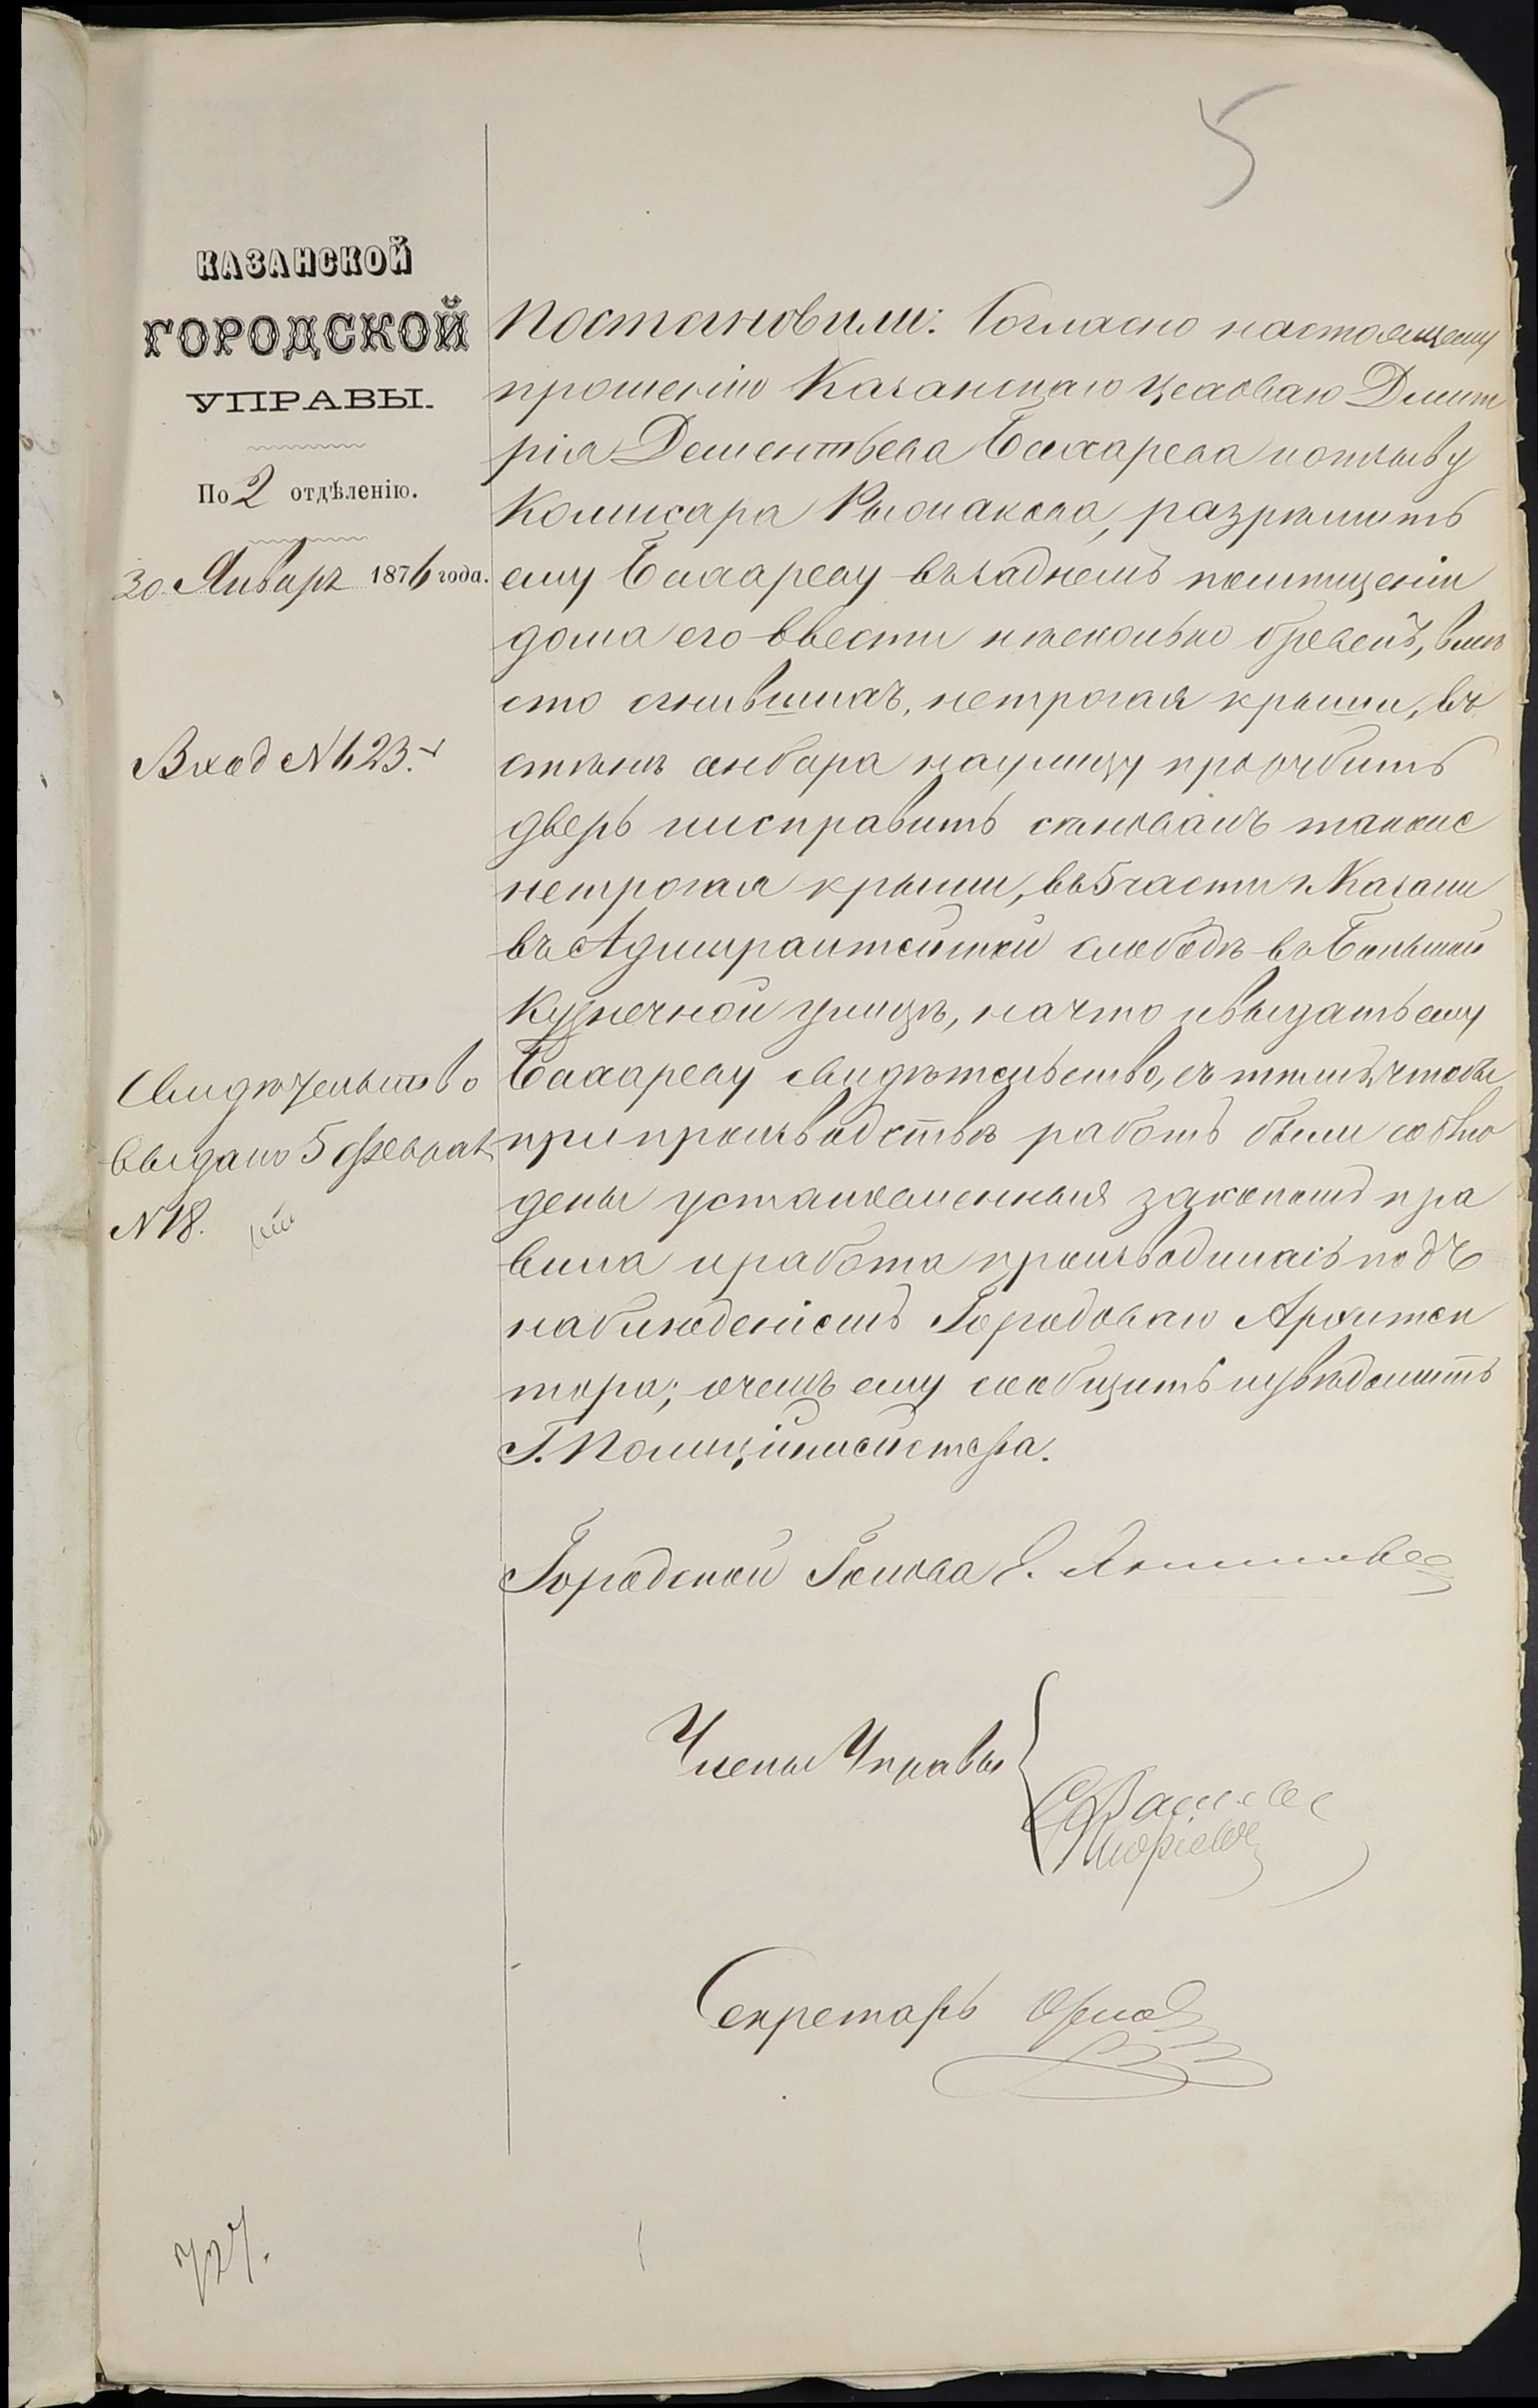 5
КАЗАНСКОЙ
ГОРОДСКОЙ
УПРАВЫ.
По 2 отдѣленію.
30 Январь 1876 года.
Вход N 623.
Свидѣтельство
выдано 5 февраля
N 18.
Постановили: Согласно настоящему
прошенію Казанскаго цеховаго Дмит
рія Дементьева Бахарева и отзыву
Комисара Рыбнакова, разрѣшить
ему Бахареву въ заднемъ помѣщеніи
дома его ввести нѣсколько бревенъ, вмѣ
сто сгнившихъ, нетрогая крыши, въ
стѣнѣ анбара на улицу прорубить
дверь и исправить сѣновалъ также
нетрогая крыши, въ 5 части г. Казани
въ Адмиралтейской слободѣ въ Большой
Кузнечной улицѣ, на что и выдать ему
Бахареву свидѣтельство, съ тѣмъ, чтобы
при производствѣ работъ были соблю
дены установленныя закономъ пра
вила и работа производилась подъ
наблюденіемъ Городоваго Архитек
тора; о чемъ ему сообщить и увѣдомить
Г. Полиціймейстера.
Городской Голова
Члены Управы
Секретарь Орлов
727.